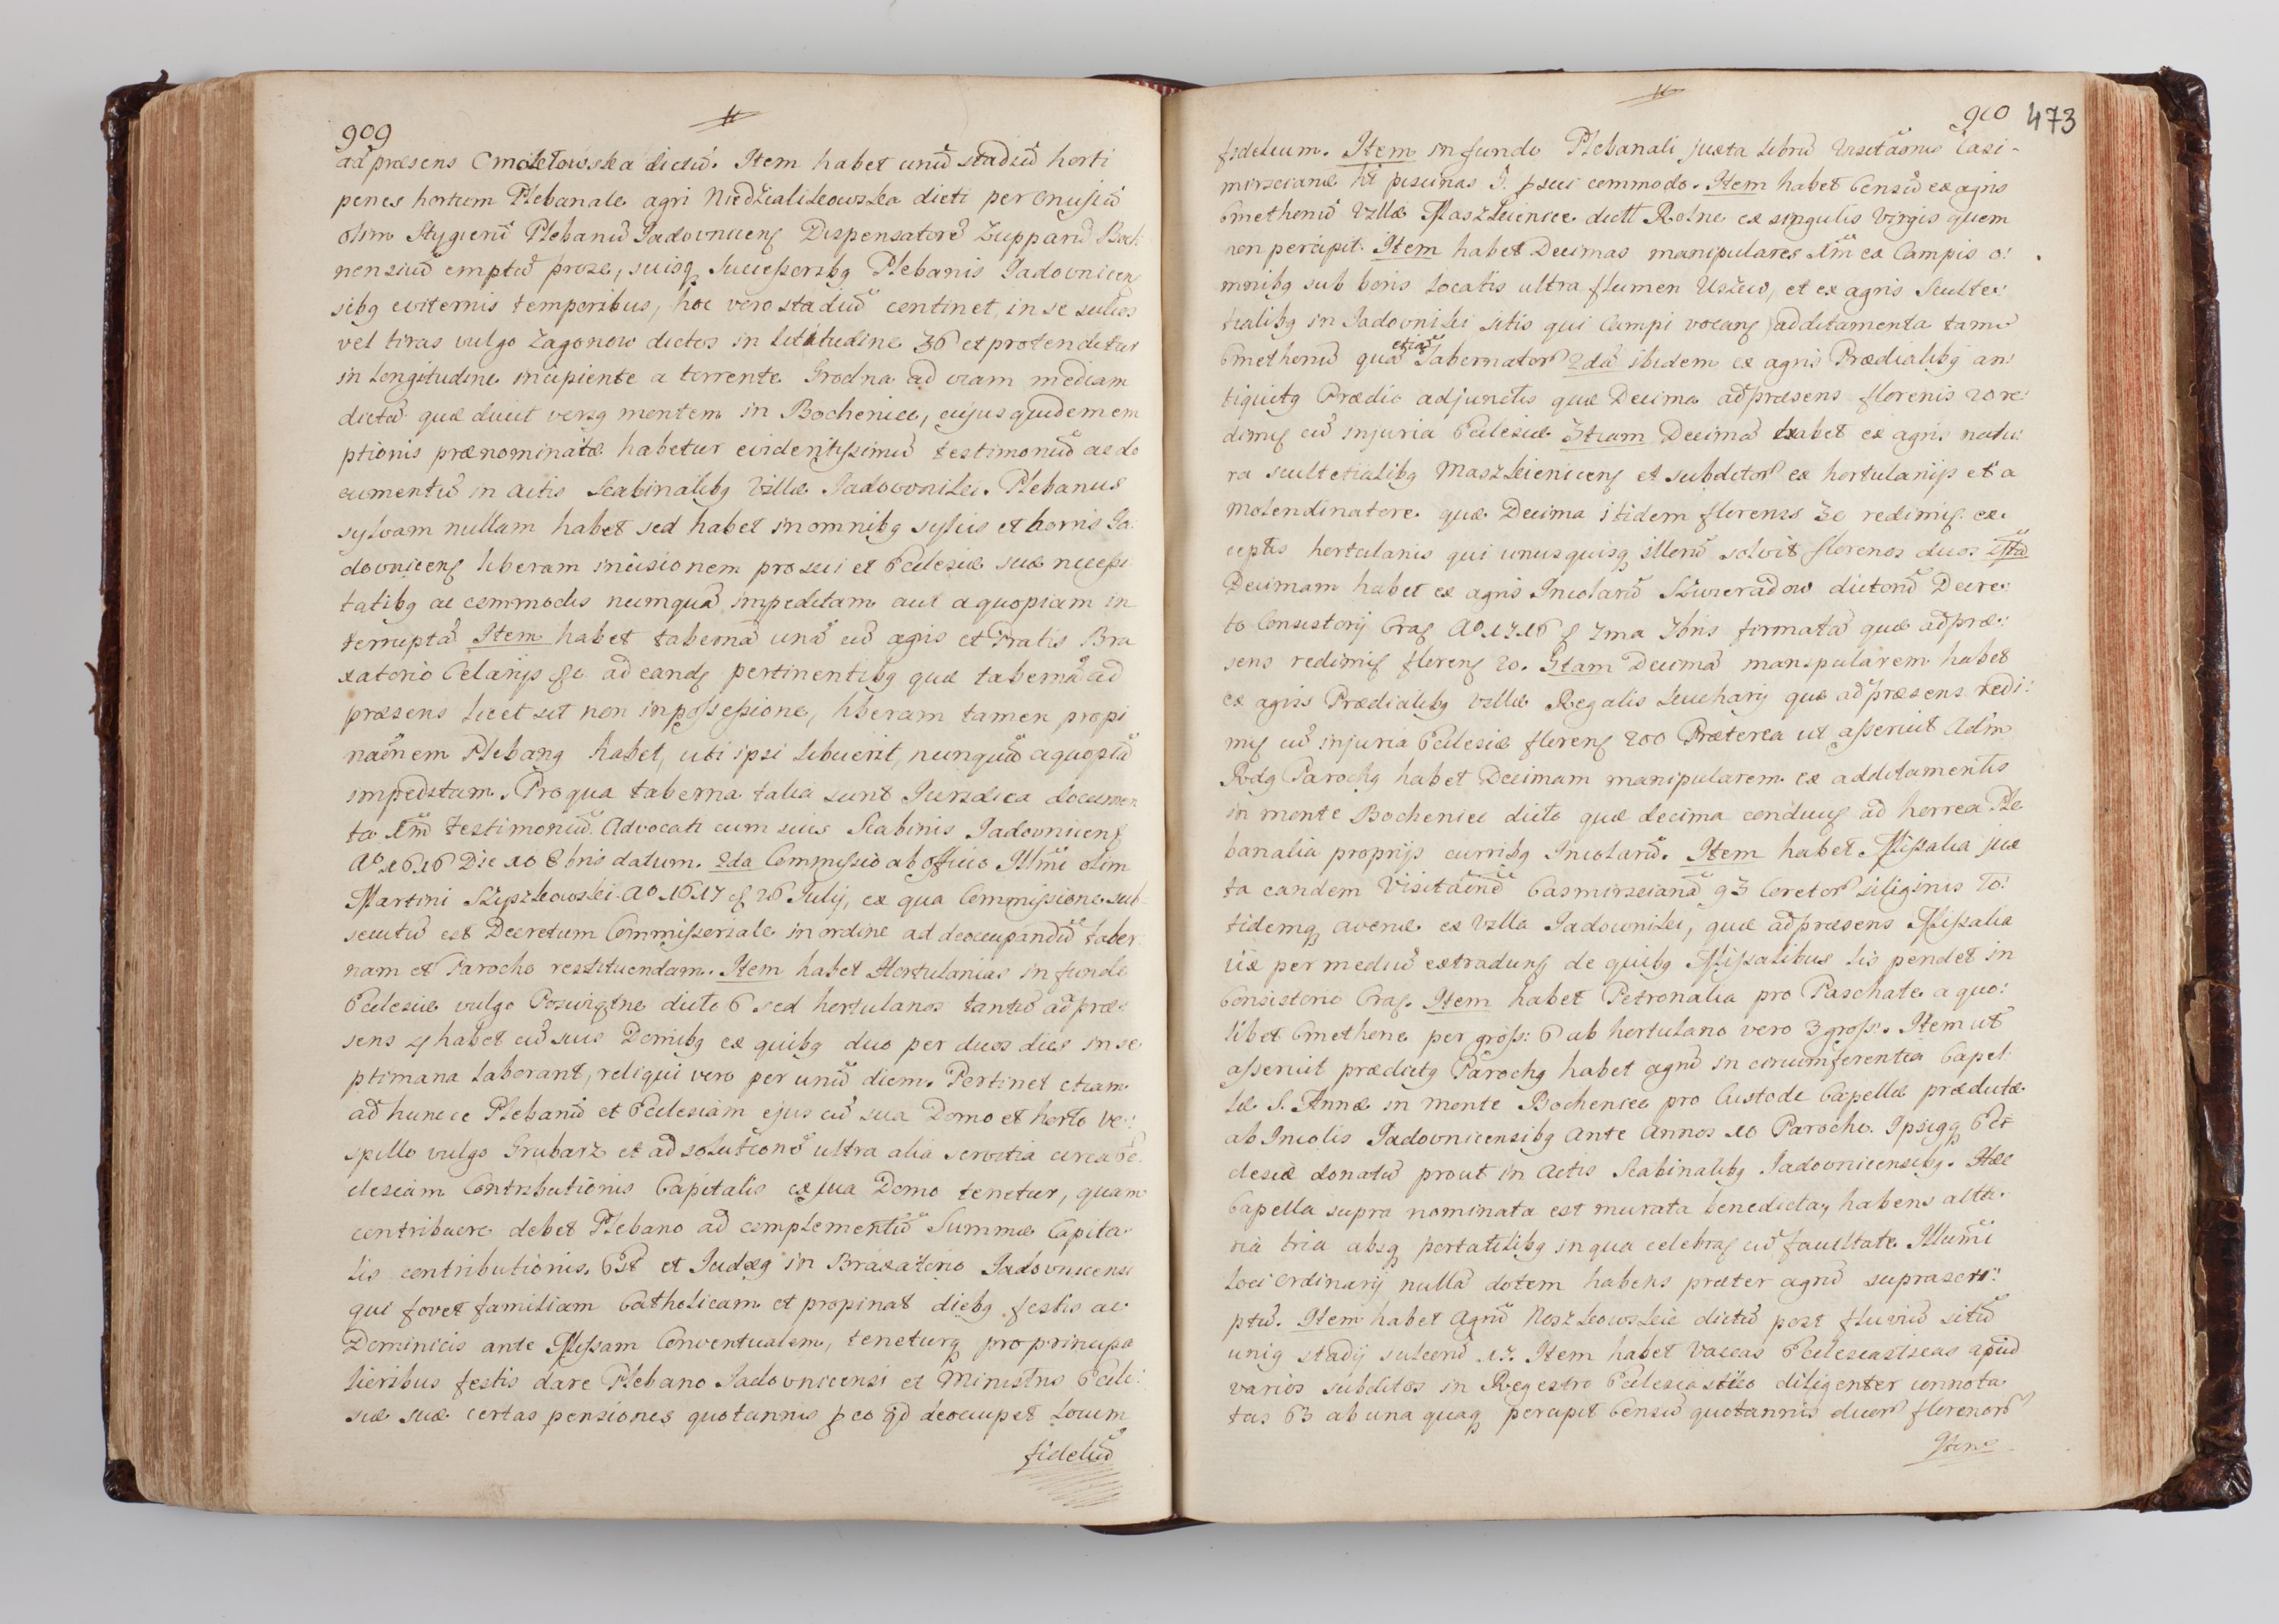 909
ad præsens Cmoletowska dictũ. Item habet unũ stadiũ horti
penes hortum Plebanale agri Niedzialilkowska dicti per
olim Stygieriũ Plebanũ Jadovnicens Dispensatorẽ Zupparũ Boch
nensiũ emptũ pro se, suisq successoribq Plebanis Jadovnicen
sibq eviternis temporibus, hoc vero stadiũ continet in se sulcos
vel liras vulgo Zagonow dictos in latitudine 36 et protenditur
in longitudine incipiente a torrente Grodna ad viam mediam
dictã quæ ducit versq montem in Bocheniec, cujus quidem em
ptionis prænominatæ habetur evidentissimũ testimoniũ ac do
cumentũ in actis Scabinalibq Villæ Jadovniki. Plebanus
sylvam nullam habet sed habet in omnibq sylvis et borris Ja
dovnicens liberam incisionem pro sui et Ecclesiæ suæ necessi
tatibq ac commodis numquã impeditam aut a quopiam in
terruptã Item habet tabernã unã cũ agris et Pratis Bra
xatorio Celarijs &c ad eand pertinentibq quæ taberna ad
præsens licet sit non in possessione, liberam tamen propi
naõnem Plebanq habet, uti ipsi libuerit, nunquã a quopiã
impeditam. Pro qua taberna talia sunt Juridica documen
ta 1mũ testimoniũ Advocati cum suis Scabinis Jadovnicens
Aº 1616 Die 10 8bris datum. 2da Commissio ab officio Illmi olim
Martini Szyszkowski Aº 1617 26 Julij, ex qua Commissione sub
secutũ est Decretum Commissoriale in ordine ad deoccupandũ taber
nam et Parocho restituendam. Item habet Hortulanias in fundo
Ecclesiæ vulgo Poswigtne dicto 6 sed hortulanos tantũ ad præ
sens 4 habet cũ suis Domibq ex quibq duo per duos dies in se
ptimana laborant, reliqui vero per unũ diem. Pertinet etiam
ad huncce Plebanũ et Ecclesiam ejus cũ sua Domo et horto ve:
spillo vulgo Grubarz et ad solutionẽ ultra alia servitia circa Ec
clesiam Contributionis Capitalis ex sua Domo tenetur, quam
contribuere debet Plebano ad complementũ Summæ Capita
lis contributionis. Est et Judæq in Braxatorio Jadovnicensi
qui fovet familiam Catholicam et propinat diebq festis ac
Dominicis ante Missam Conventualem, teneturq pro principa
lioribus festis dare Plebano Jadovnicensi et Ministris Eccle:
siæ suæ certas pensiones quotannis p eo qd deoccupet locum
fidelũ
910 473
fidelium. Item in fundo Plebanali juxta librũ Visitaõnis Casi-
mirscianæ ht piscinas 3. p sui commodo. Item habet Censũ ex agris
Cmethonũ Villæ Maszkienice dict Rolne ex singulis Virgis quem
non percipit. Item habet Decimas manipulares 1m ex Campis o:
mnibq sub boris locatis ultra flumen Uszew, et ex agris Sculte:
tialibq in Jadovniki sitis qui Campi vocans additamenta tam
Cmethonũ quã etiã Tabernator 2dã ibidem ex agris Prædialibq an:
tiquitq Prædio adjunctis quæ Decima ad præsens florenis 20 re
dimit cũ injuria Ecclesiæ 3tiam Decimã habet ex agris natu:
ra scultetialibq Maszkienicens et subditor ex hortulanijs et a
molendinatore quæ Decima itidem florenis 30 redimit ex
ceptis hortulanis qui unusquisq illorũ solvit florenos duos 4tã
Decimam habet ex agris Incolarũ Szwieradow dictorũ Decre:
to Consistorij Crac Aº 1716 7ma 7bris firmatã quæ ad præ:
sens redimit floren 20. 5tam Decimã manipularem habet
ex agris Prædialibq Villæ Regalis quæ ad præsens redi:
mit cũ injuria Ecclesiæ floren 200 Præterea ut asseruit Adm
Rdq Parochq habet Decimam manipularem ex additamentis
in monte Bocheniec dicto quæ decima conduc ad horrea Ple
banalia proprijs curribq Incolarũ. Item habet Missalia jux
ta eandem Visitaõnẽ Casmirscianã 93 Coretor siliginis to:
tidemq avenæ ex Villa Jadowniki, quæ ad præsens Missalia
vix per mediũ extradun de quibq Missalibus lis pendet in
Consistorio Crac. Item habet Petronalia pro Paschate a quo:
libet Cmethone per gross: 6 ab hortulano vero 3 gross. Item ut
asseruit prædictq Parochq habet agrũ in circumferentia Capel
læ S. Annæ in monte Bocheniec pro Custode Capellæ prædictæ
ab Incolis Jadovnicensibq ante annos 10 Parocho. Ipsiqq Ec
clesiæ donatũ prout in Actis Scabinalibq Jadovnicensibq. Hæc
Capella supra nominata est murata benedicta, habens alta
ria tria absq portatilibq in qua celebrat cũ facultate Illumi
Loci Ordinarij nullã dotem habens præter agrũ suprascri:
ptũ. Item habet agrũ Noszkowskie dictũ post fluviũ sitũ
uniq stadij sulcorũ 17. Item habet Vaccas Ecclesiasticas apud
varios subditos in Regestro Ecclesiastico diligenter connota
tas 63 ab una quaq percipit Censũ quotannis duor florenor
Item